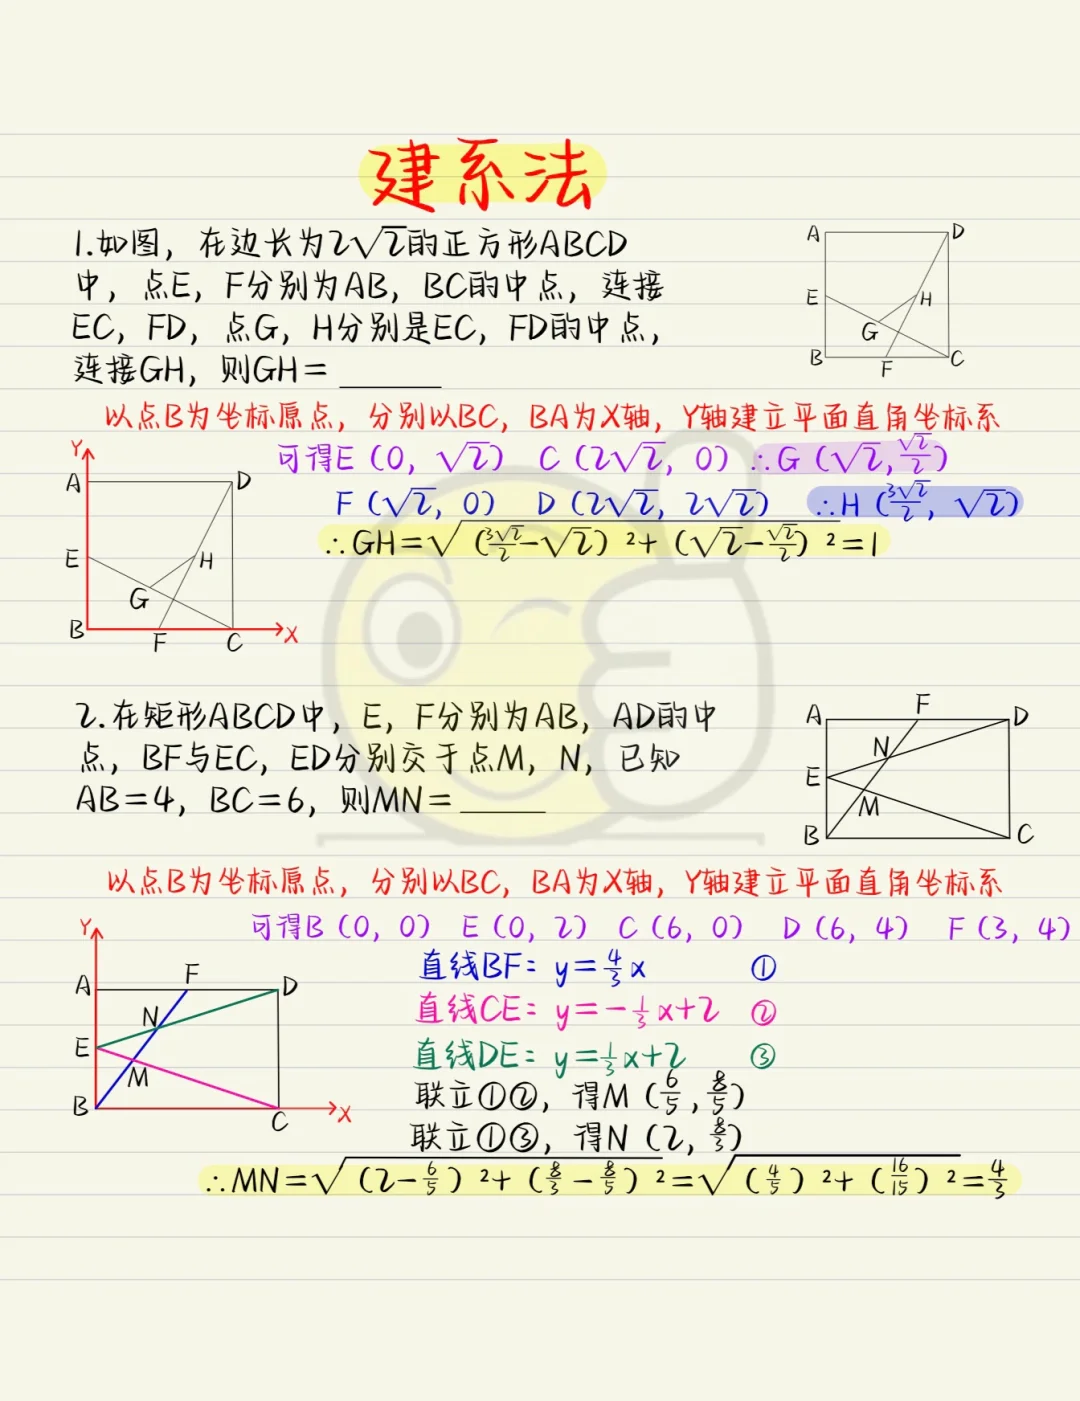 建系法
1.如图，在边长为2√2的正方形ABCD
中，点E，F分别为AB，BC的中点，连接
EC，FD，点G，H分别是EC，FD的中点，
连接GH，则GH＝______
A D
E H
G
B F C
以点B为坐标原点，分别以BC，BA为X轴，Y轴建立平面直角坐标系
可得E（0，√2） C（2√2，0）∴G（√2,√2/2）
F（√2，0） D（2√2，2√2） ∴H（3√2/2，√2）
∴GH＝√（3√2/2－√2）²＋（√2－√2/2）²＝1
Y
A D
E H
G
B F C X
2.在矩形ABCD中，E，F分别为AB，AD的中
点，BF与EC，ED分别交于点M，N，已知
AB＝4，BC＝6，则MN＝______
A F D
N
E
M
B C
以点B为坐标原点，分别以BC，BA为X轴，Y轴建立平面直角坐标系
可得B（0，0） E（0，2） C（6，0） D（6，4） F（3，4）
直线BF：y＝4/3x ①
直线CE：y＝－1/3x＋2 ②
直线DE：y＝1/3x＋2 ③
联立①②，得M（6/5,8/5）
联立①③，得N（2,8/3）
∴MN＝√（2－6/5）²＋（8/3－8/5）²＝√（4/5）²＋（16/15）²＝4/3
Y
A F D
N
E
M
B C X